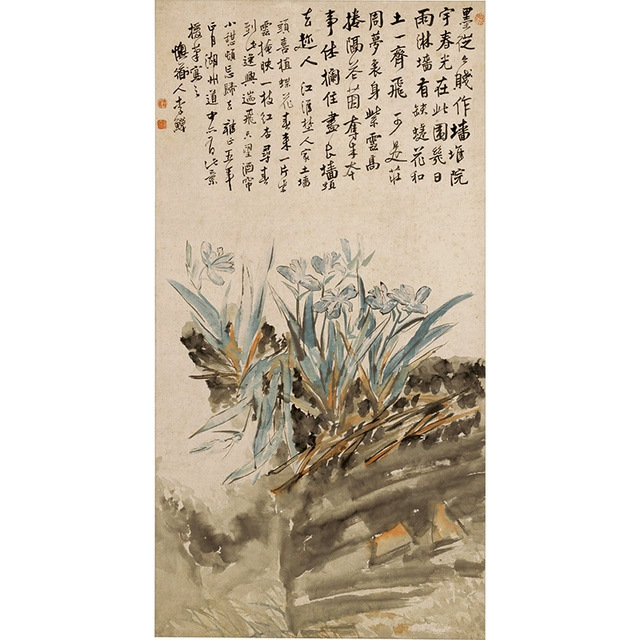 墨從賤作墻堆院
宇春光在此園幾日
雨淋墻有缺蝶花和
土一齊飛 是莊
周夢裏身紫雲高
捲隔花茵奪朱本
事任攔住盡墻頭
去趁人 江淮埜人家土墻
頭喜植蝶花春來一片紫
雲掩映一枝紅杏尋春
到此逸興遄飛望酒帘
小憩頓忘歸去雍正五年
正月湖州道中此景
援筆寫之
懊道人李鱓